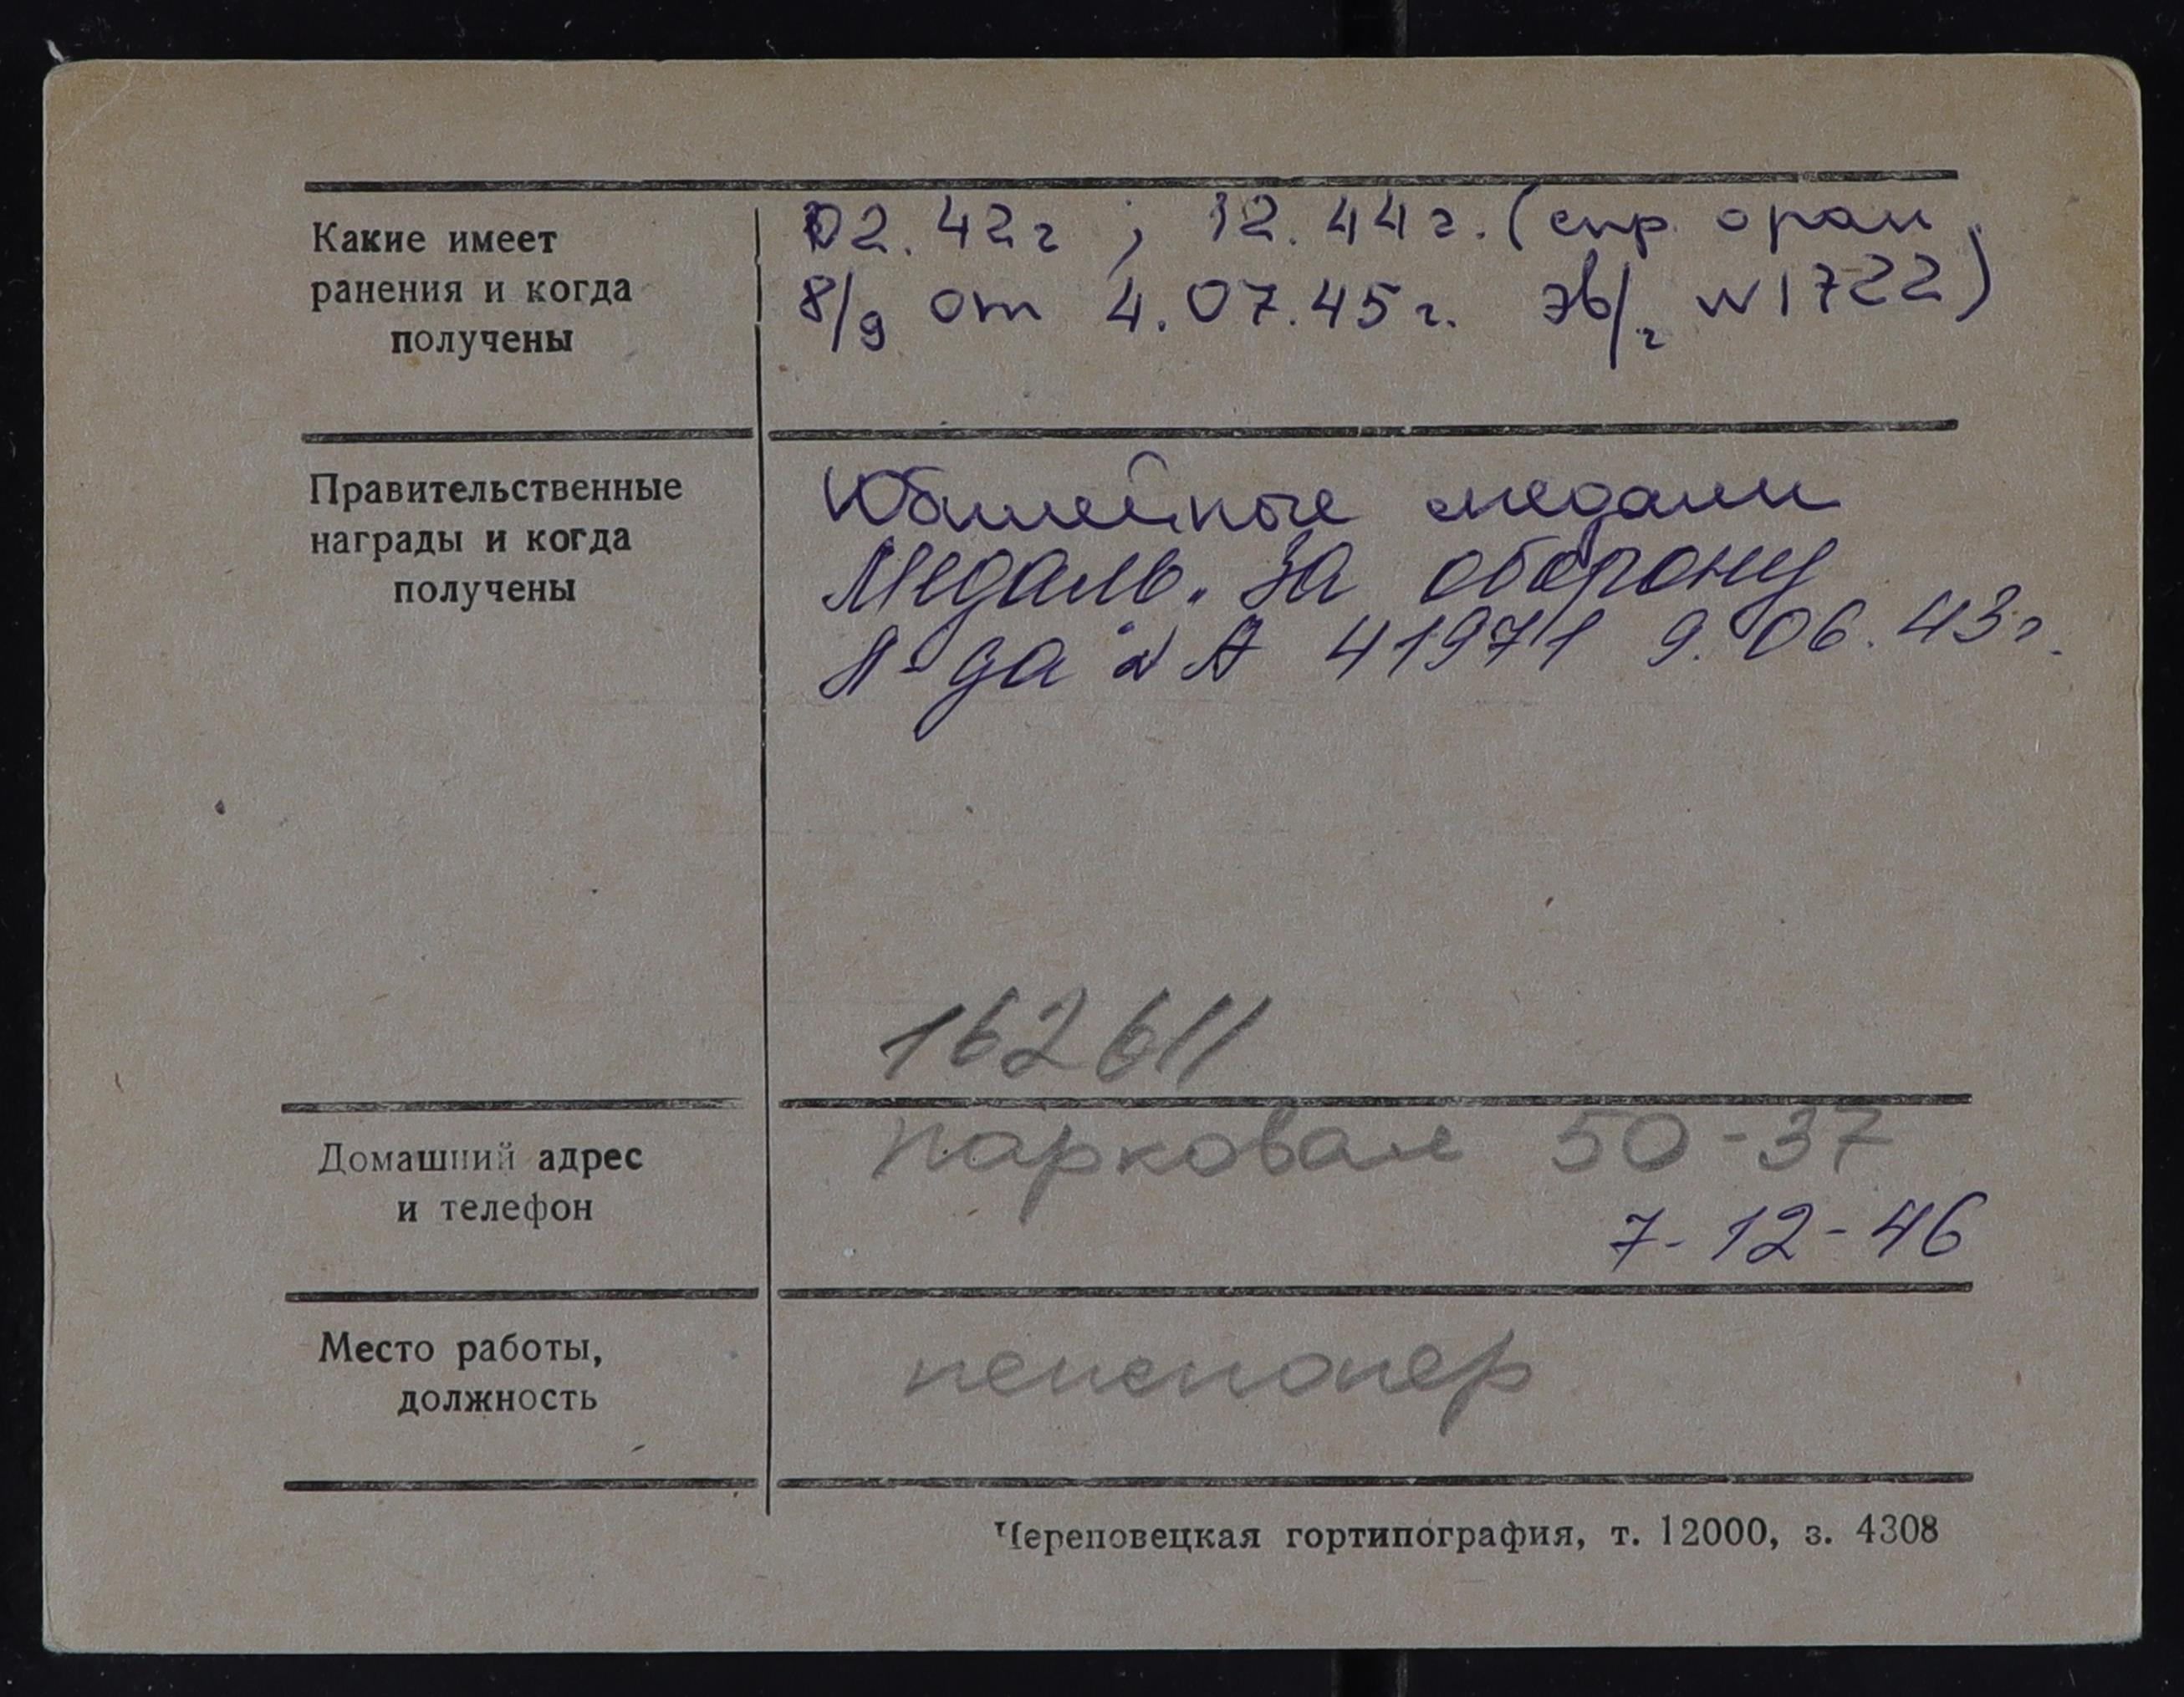 Какие имеет
ранения и когда
получены
02.42г ; 12.44г. (спр. о ран.
8/9 от 4.07.45г. эв/г N1722)
Правительственные
награды и когда
получены
Юбилейные медали
Медаль „За оборону
Л-да" А 41971 9.06.43г.
162611
Домашний адрес
и телефон
Парковая 50-37
7-12-46
Место работы,
должность
пенсионер
Череповецкая гортипография, т. 12000, з. 4308